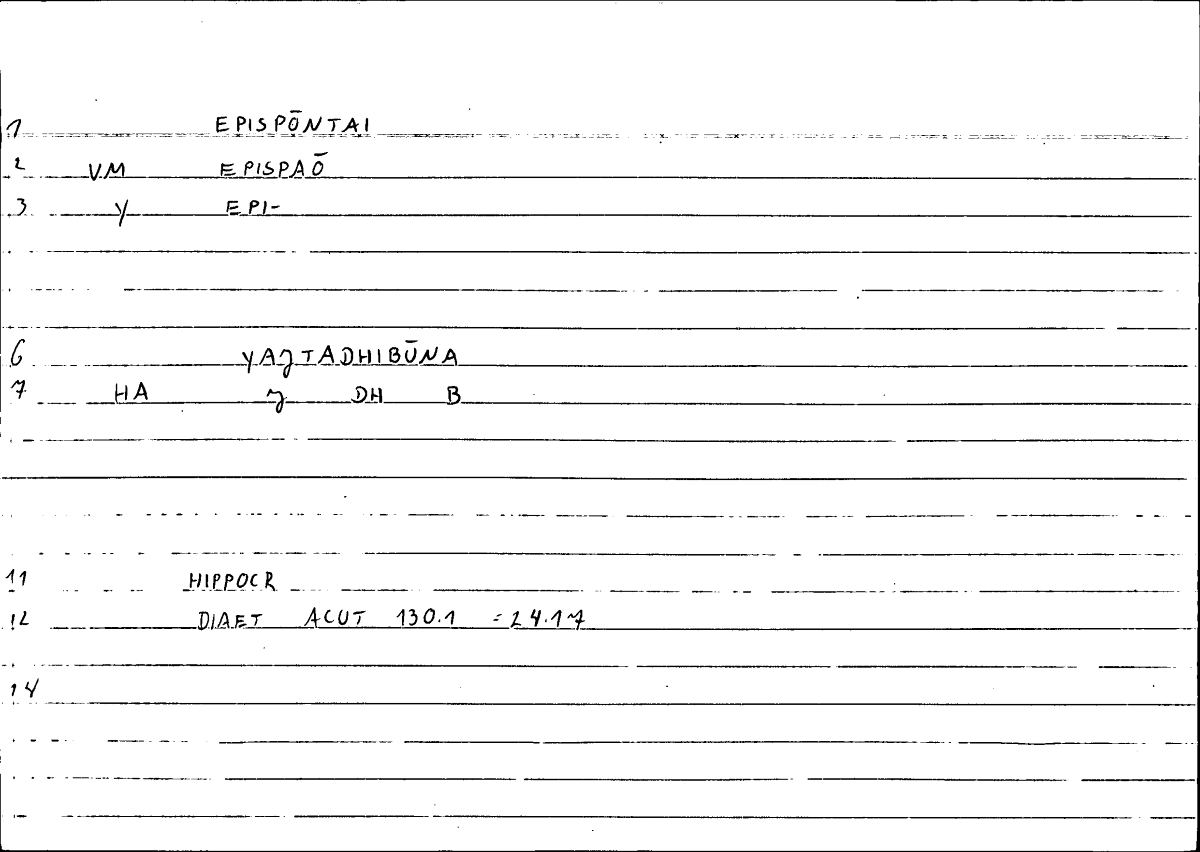 1 EPISPŌNTAI
2 VM EPISPAŌ
3 Y EPI-
6 YAJTADHIBŪNA
7 HA J DH B
11 HIPPOCR
12 DIAET ACUT 130.1 =24.17
14